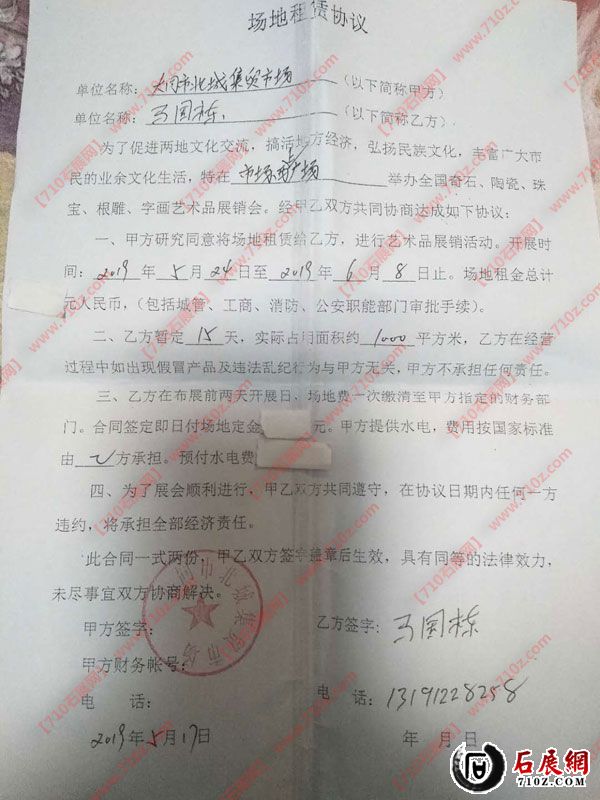 场地租赁协议
单位名称：大同市北城集贸市场（以下简称甲方）
单位名称：马国栋（以下简称乙方）
为了促进两地文化交流，搞活地方经济，弘扬民族文化，丰富广大市
民的业余文化生活，特在 市场南广场 举办全国奇石、陶瓷、珠
宝、根雕、字画艺术品展销会。经甲乙双方共同协商达成如下协议：
一、甲方研究同意将场地租赁给乙方，进行艺术品展销活动。开展时
间：2019年5月24日至2019年6月8日止。场地租金总计
元人民币，（包括城管、工商、消防、公安职能部门审批手续）。
二、乙方暂定 15 天，实际占用面积约 1000 平方米，乙方在经营
过程中如出现假冒产品及违法乱纪行为与甲方无关，甲方不承担任何责任。
三、乙方在布展前两天开展日，场地费一次缴清至甲方指定的财务部
门。合同签定即日付场地定金 元。甲方提供水电，费用按国家标准
由 乙 方承担。预付水电费
四、为了展会顺利进行，甲乙双方共同遵守，在协议日期内任何一方
违约，将承担全部经济责任。
此合同一式两份，甲乙双方签字盖章后生效，具有同等的法律效力，
未尽事宜双方协商解决。
甲方签字：
乙方签字：马国栋
甲方财务帐号：
电 话：
电 话：13191228258
2019年5月17日
年 月 日
大同市北城集贸市场
【710石展网】www.710z.com
石展網
www.710z.com